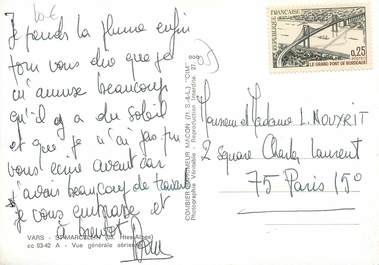 Je prends la plume enfin
pour vous dire que je
m'amuse beaucoup
qu'il y a du soleil
et que je n'ai pas pu
vous écrire avant car
j'avais beaucoup de travail
je vous embrasse et
à bientôt
VARS - St-MARCELLIN (Htes-Alpes)
cc 93-42 A - Vue générale aérienne
COMBIER IMPRIMEUR MACON (71. S.-&-L.) "CIM"
Photographie Véritable - Reproduction Interdite
REPUBLIQUE FRANÇAISE
POSTES
0,25
LE GRAND PONT DE BORDEAUX
Monsieur Madame L. NOUYRIT
2 Square Charles Laurent
75 Paris 15°